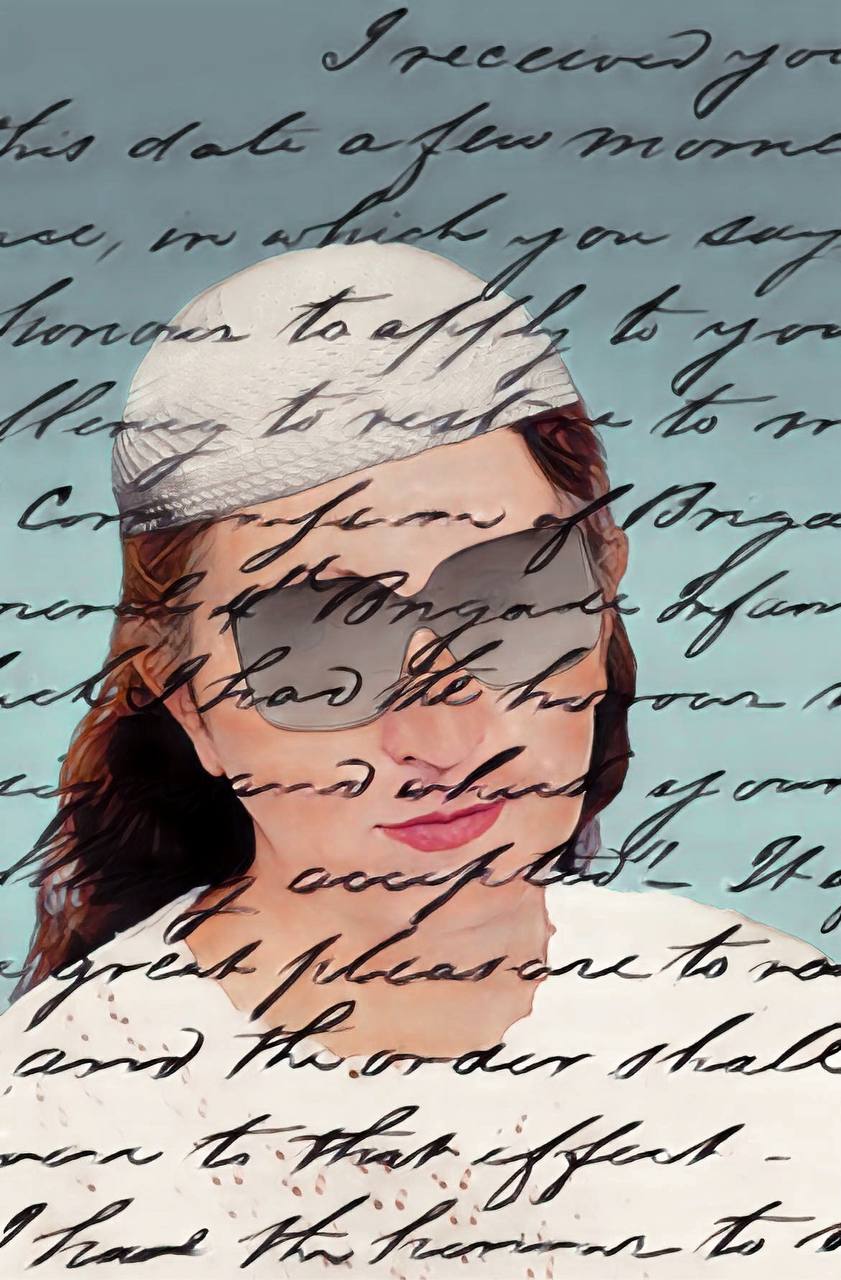 I received you
this date a few mome
in which you say
honour to apply to you
to restore to m
of Briga
Brigade Infan
I had the honour
and which your
accepted"! It
great pleasure to
and the order shall
to that effect -
I have the honour to